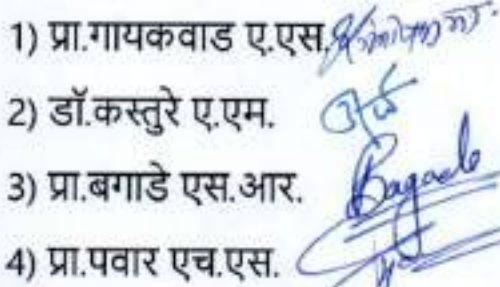 1) प्रा.गायकवाड ए.एस.
2) डॉ.कस्तुरे ए.एम.
3) प्रा.बगाडे एस.आर. Bagade
4) प्रा.पवार एच.एस.